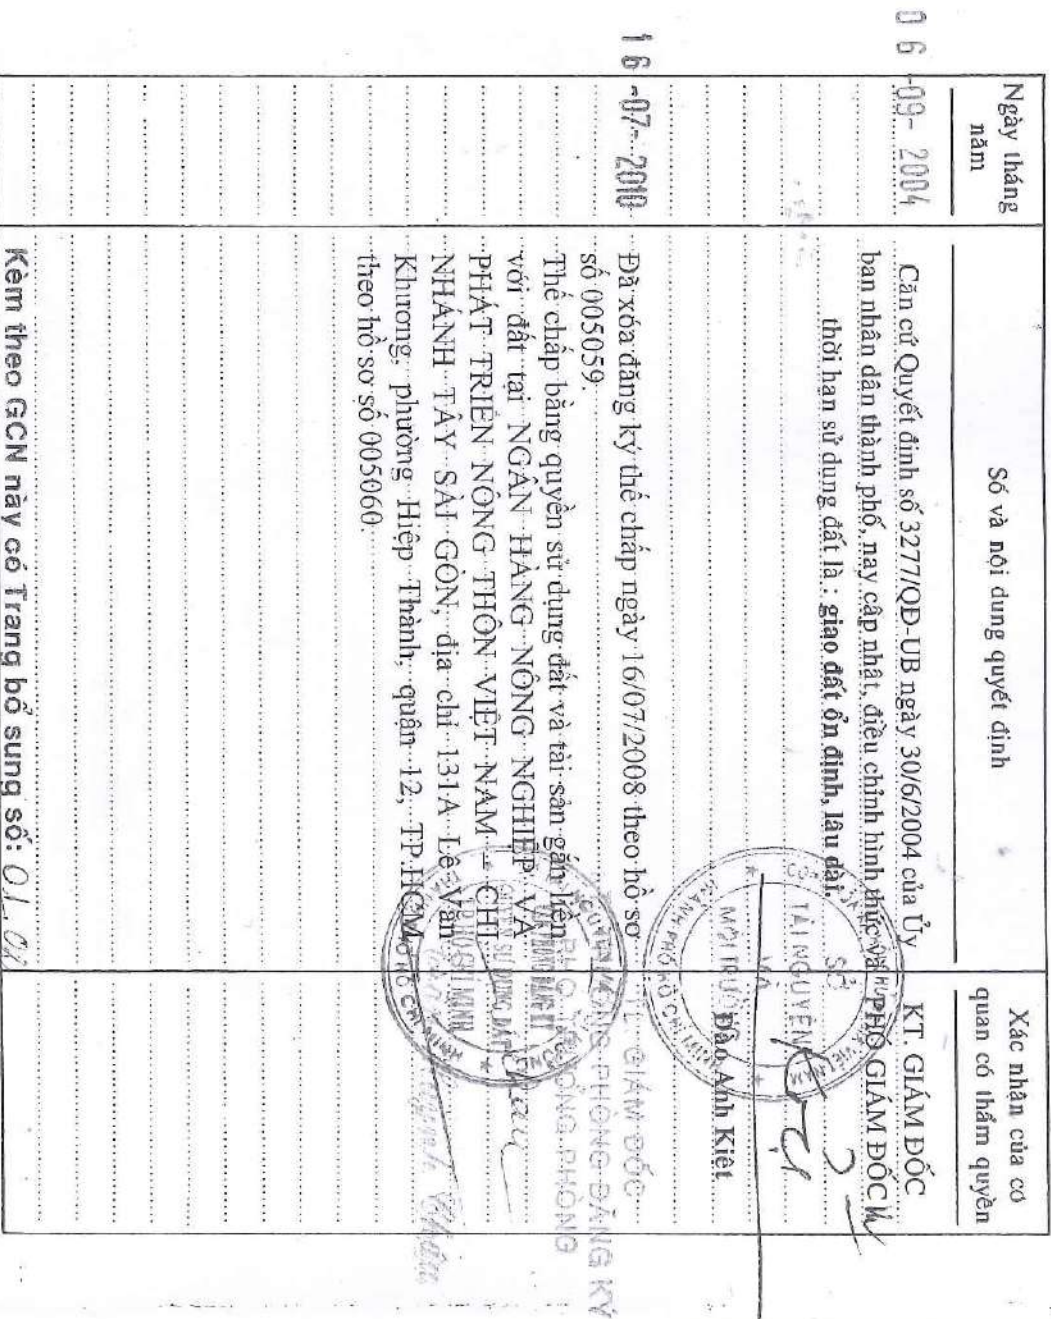 Ngày tháng
năm
Số và nội dung quyết định
Xác nhận của cơ
quan có thẩm quyền
06-09-2004
Căn cứ Quyết định số 3277/QĐ-UB ngày 30/6/2004 của Ủy
ban nhân dân thành phố, nay cập nhật, điều chỉnh hình thức và
thời hạn sử dụng đất là : giao đất ổn định, lâu dài.
KT. GIÁM ĐỐC
PHÓ GIÁM ĐỐC
SỞ
TÀI NGUYÊN
VÀ
MÔI TRƯỜNG
THÀNH PHỐ HỒ CHÍ MINH
Đào Anh Kiệt
16-07-2010
Đã xóa đăng ký thế chấp ngày 16/07/2008 theo hồ sơ
số 005059.
Thế chấp bằng quyền sử dụng đất và tài sản gắn liền
với đất tại NGÂN HÀNG NÔNG NGHIỆP VÀ
PHÁT TRIỂN NÔNG THÔN VIỆT NAM – CHI
NHÁNH TÂY SÀI GÒN, địa chỉ 131A Lê Văn
Khương, phường Hiệp Thành, quận 12, TP.HCM
theo hồ sơ số 005060.
GIÁM ĐỐC
PHÒNG ĐĂNG KÝ
PHÒNG
QUYỀN SỬ DỤNG ĐẤT
TP HỒ CHÍ MINH
Kèm theo GCN này có Trang bổ sung số: 01. 02